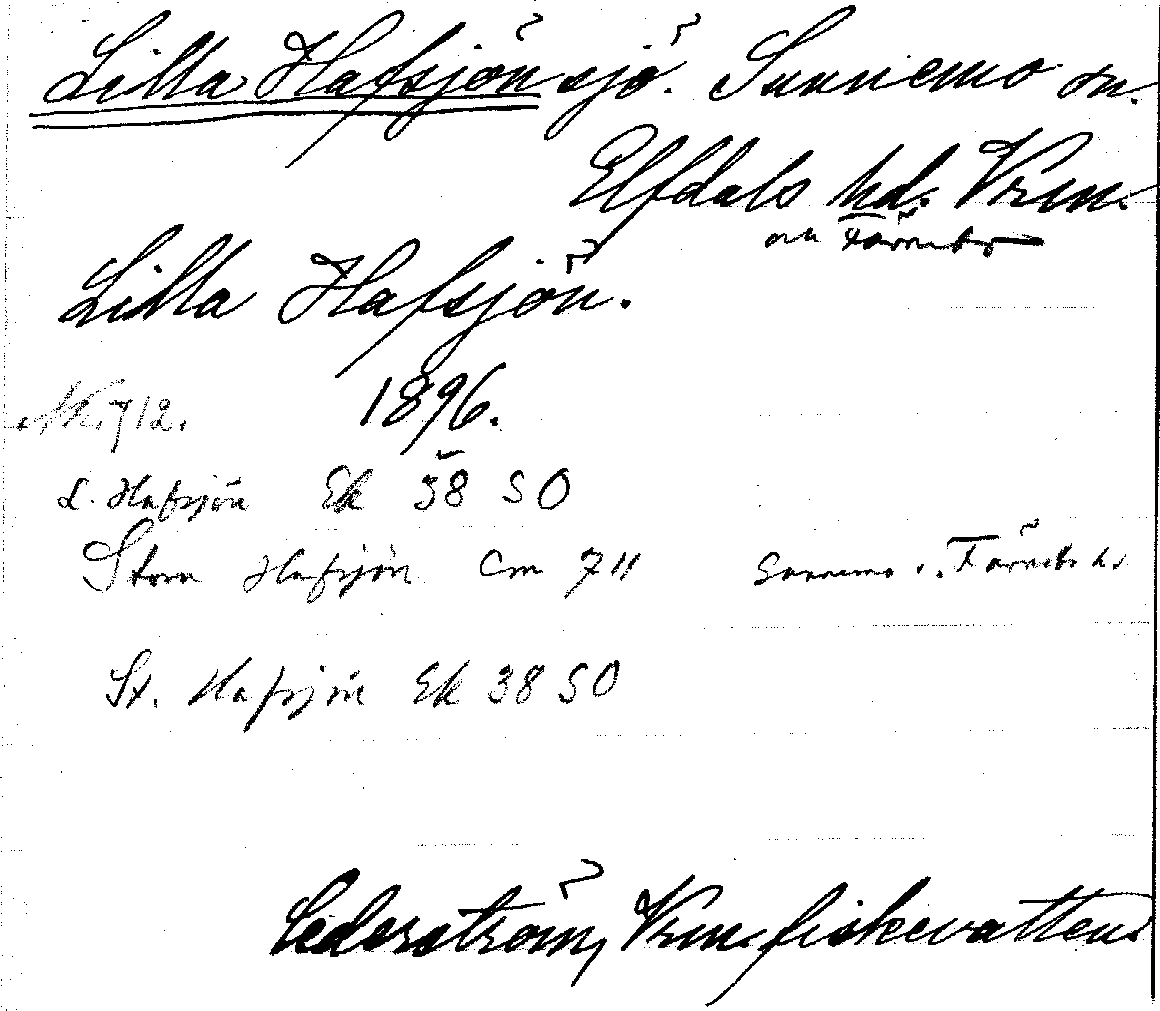 Lilla Hafsjön sjö. Sunnemo sn.
Elfdals hd. Vrm.
och Färnebo
Lilla Hafsjön.
1896.
712.
L. Hafsjön Ek 38 SO
Stora Hafsjön Cm 711 Sunnemo s. Färnebo hd
St. Hafsjön Ek 38 SO
Cederström, Vrm. fiskevatten.